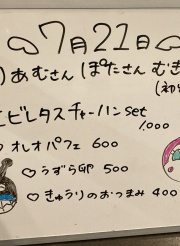 ♡7月21日♡
)あむさん ぽたさん むぎ
(初
エビレタスチャーハンset
1,000
♡オレオパフェ 600
♡うずら卵 500
♡きゅうりのおつまみ 400